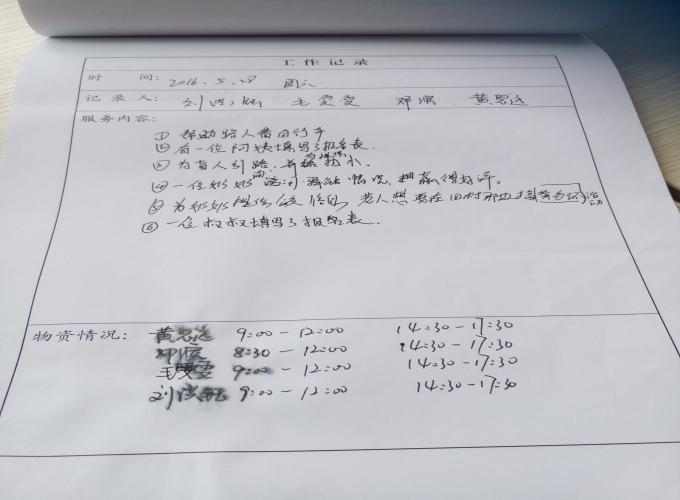 工作记录
时 间： 2016.5.28 周六
记录人： 刘 毛雯雯 邓 黄思远
服务内容：
① 帮助路人借自行车
② 有一位阿姨填写了报名表.
③ 为盲人引路.
④ 一位奶奶 询问 情况, 赢得好评。
⑤ 为奶奶提供 老人想要在田村那边 活动
⑥ 一位叔叔填写了报名表.
物资情况： 黄思远 9:00-12:00 14:30-17:30
邓 8:30-12:00 14:30-17:30
毛雯雯 9:00-12:00 14:30-17:30
刘 9:00-12:00 14:30-17:30